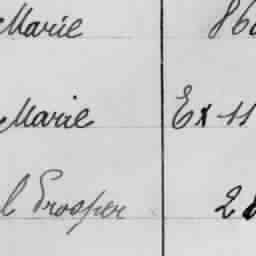 Marie 86
Marie Ex-11
l Prosper 2